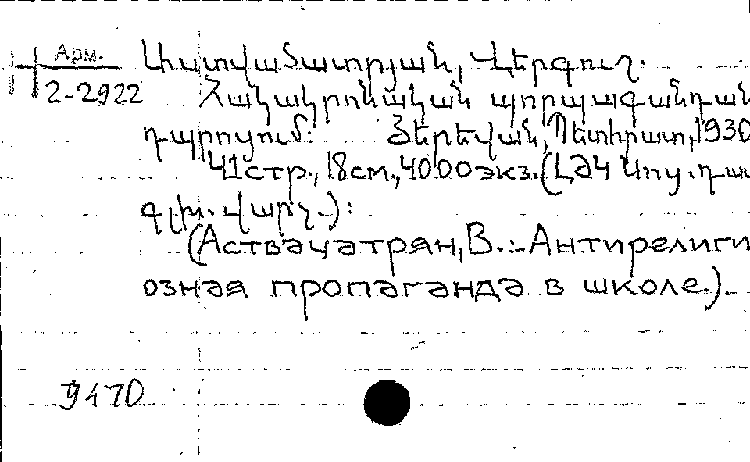 Арм. Աստվածատրյան, Վերգուշ.
2-2922 Հակակրոնական պրոպագանդան
դպրոցում: Յերեվան, Պետհրատ, 1930
41стр., 18см., 4000экз. (ԼԺԿ Սոց. դա
գլխ. վարչ.):
(Аствацатрян, В. :-Антирелиги
озная пропаганда в школе.).
9470